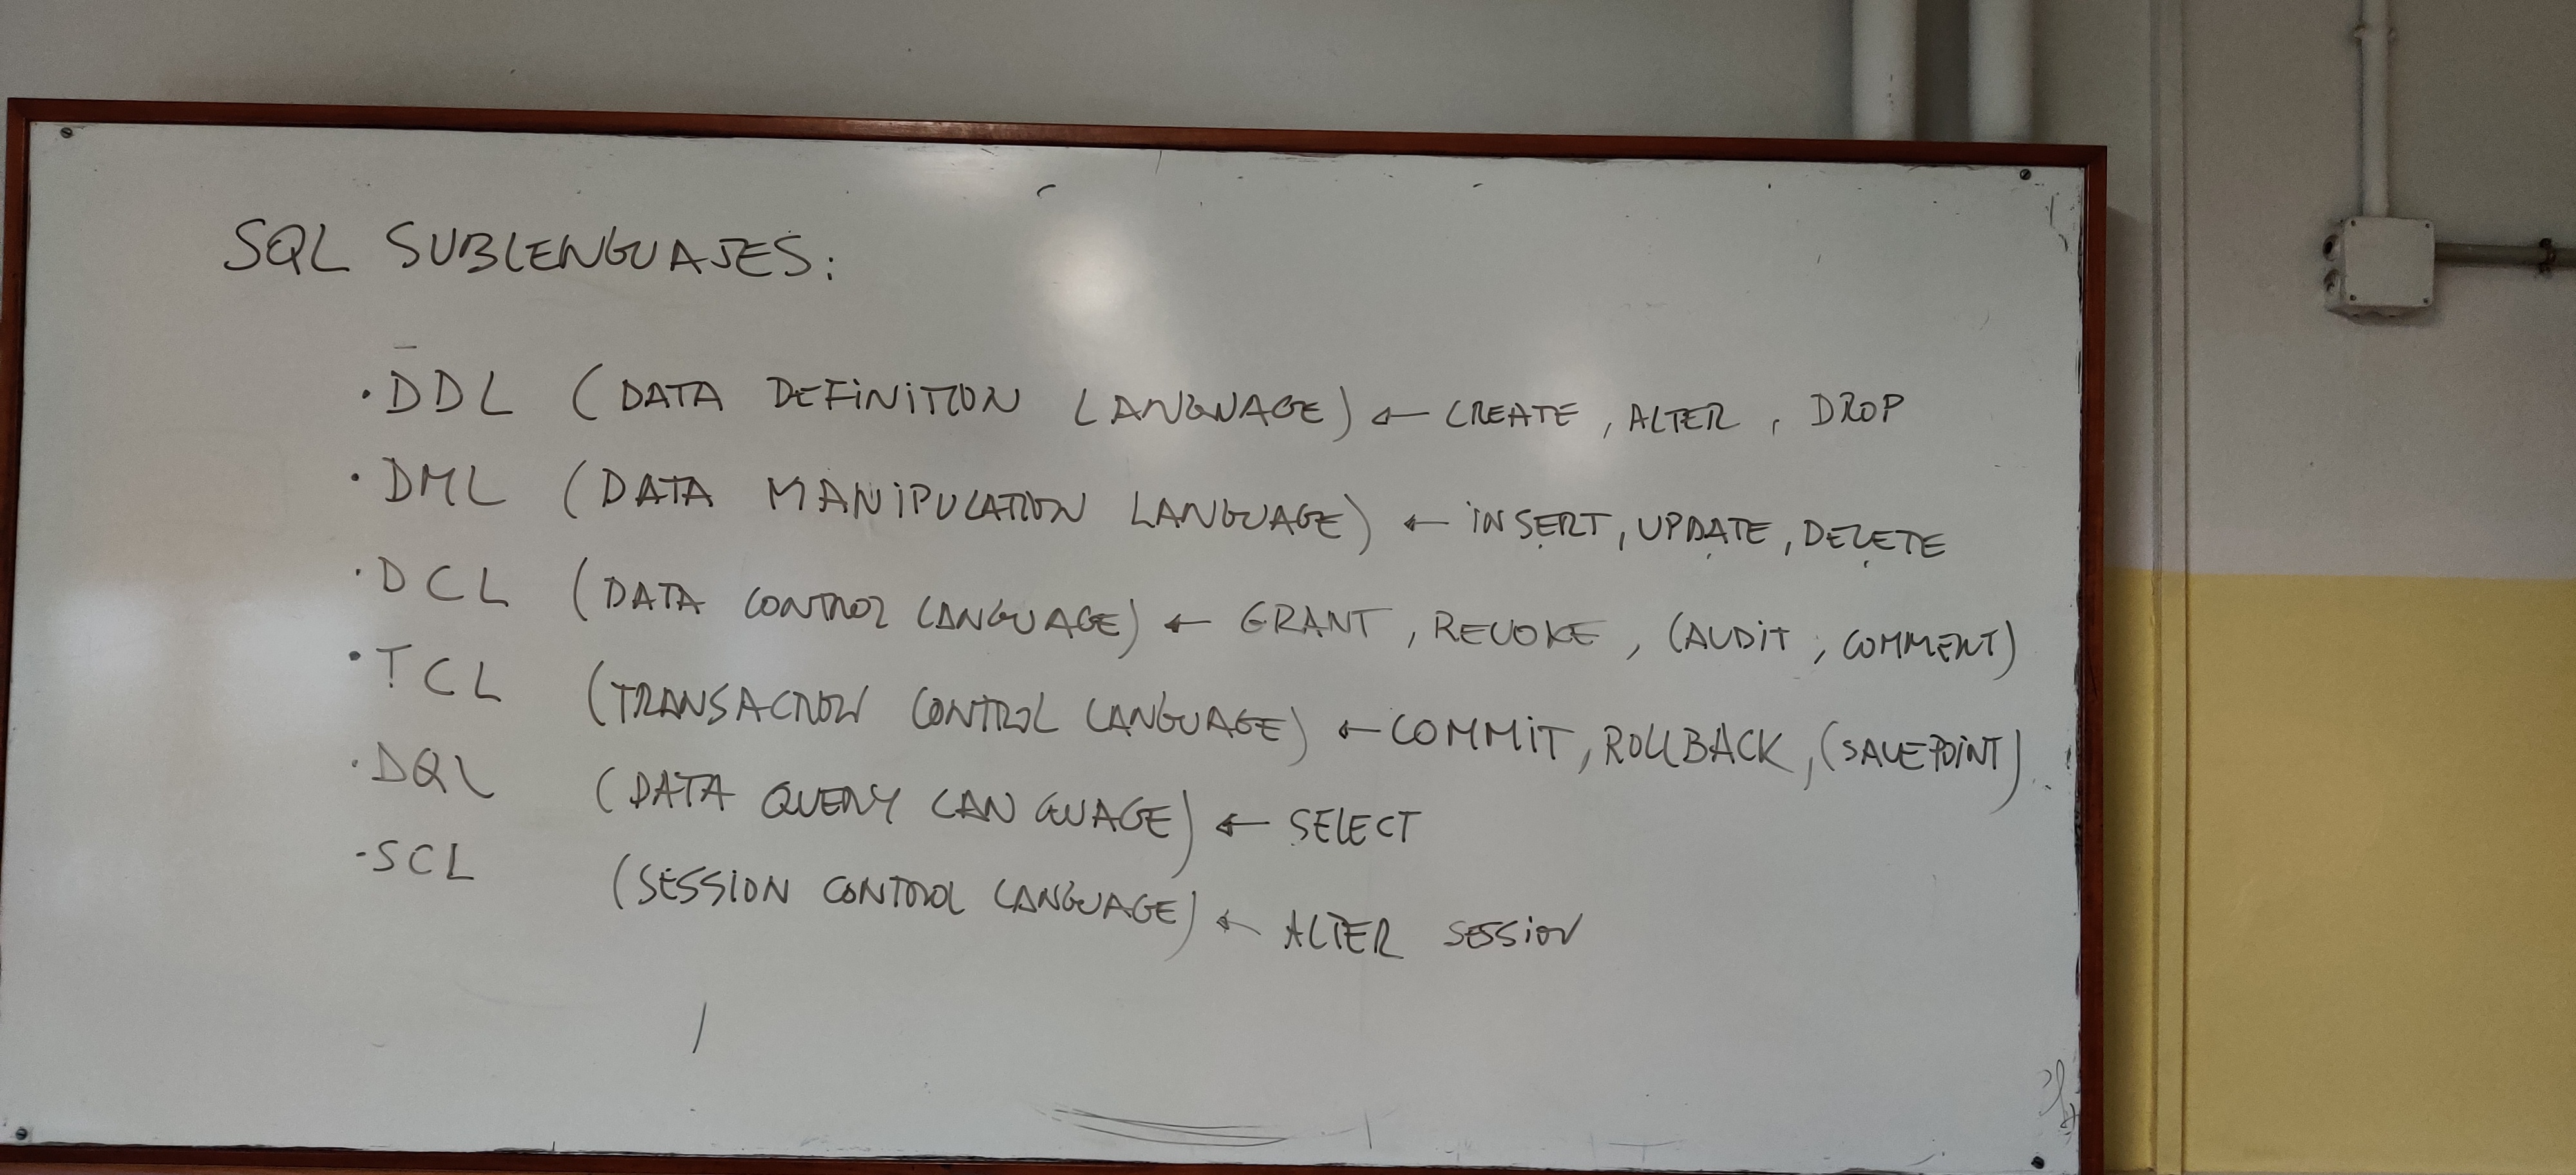 SQL SUBLENGUAJES:
· DDL (DATA DEFINITION LANGUAGE) ← CREATE, ALTER, DROP
· DML (DATA MANIPULATION LANGUAGE) ← INSERT, UPDATE, DELETE
· DCL (DATA CONTROL LANGUAGE) ← GRANT, REVOKE, (AUDIT, COMMENT)
· TCL (TRANSACTION CONTROL LANGUAGE) ← COMMIT, ROLLBACK, (SAVEPOINT)
· DQL (DATA QUERY LANGUAGE) ← SELECT
· SCL (SESSION CONTROL LANGUAGE) ← ALTER SESSION